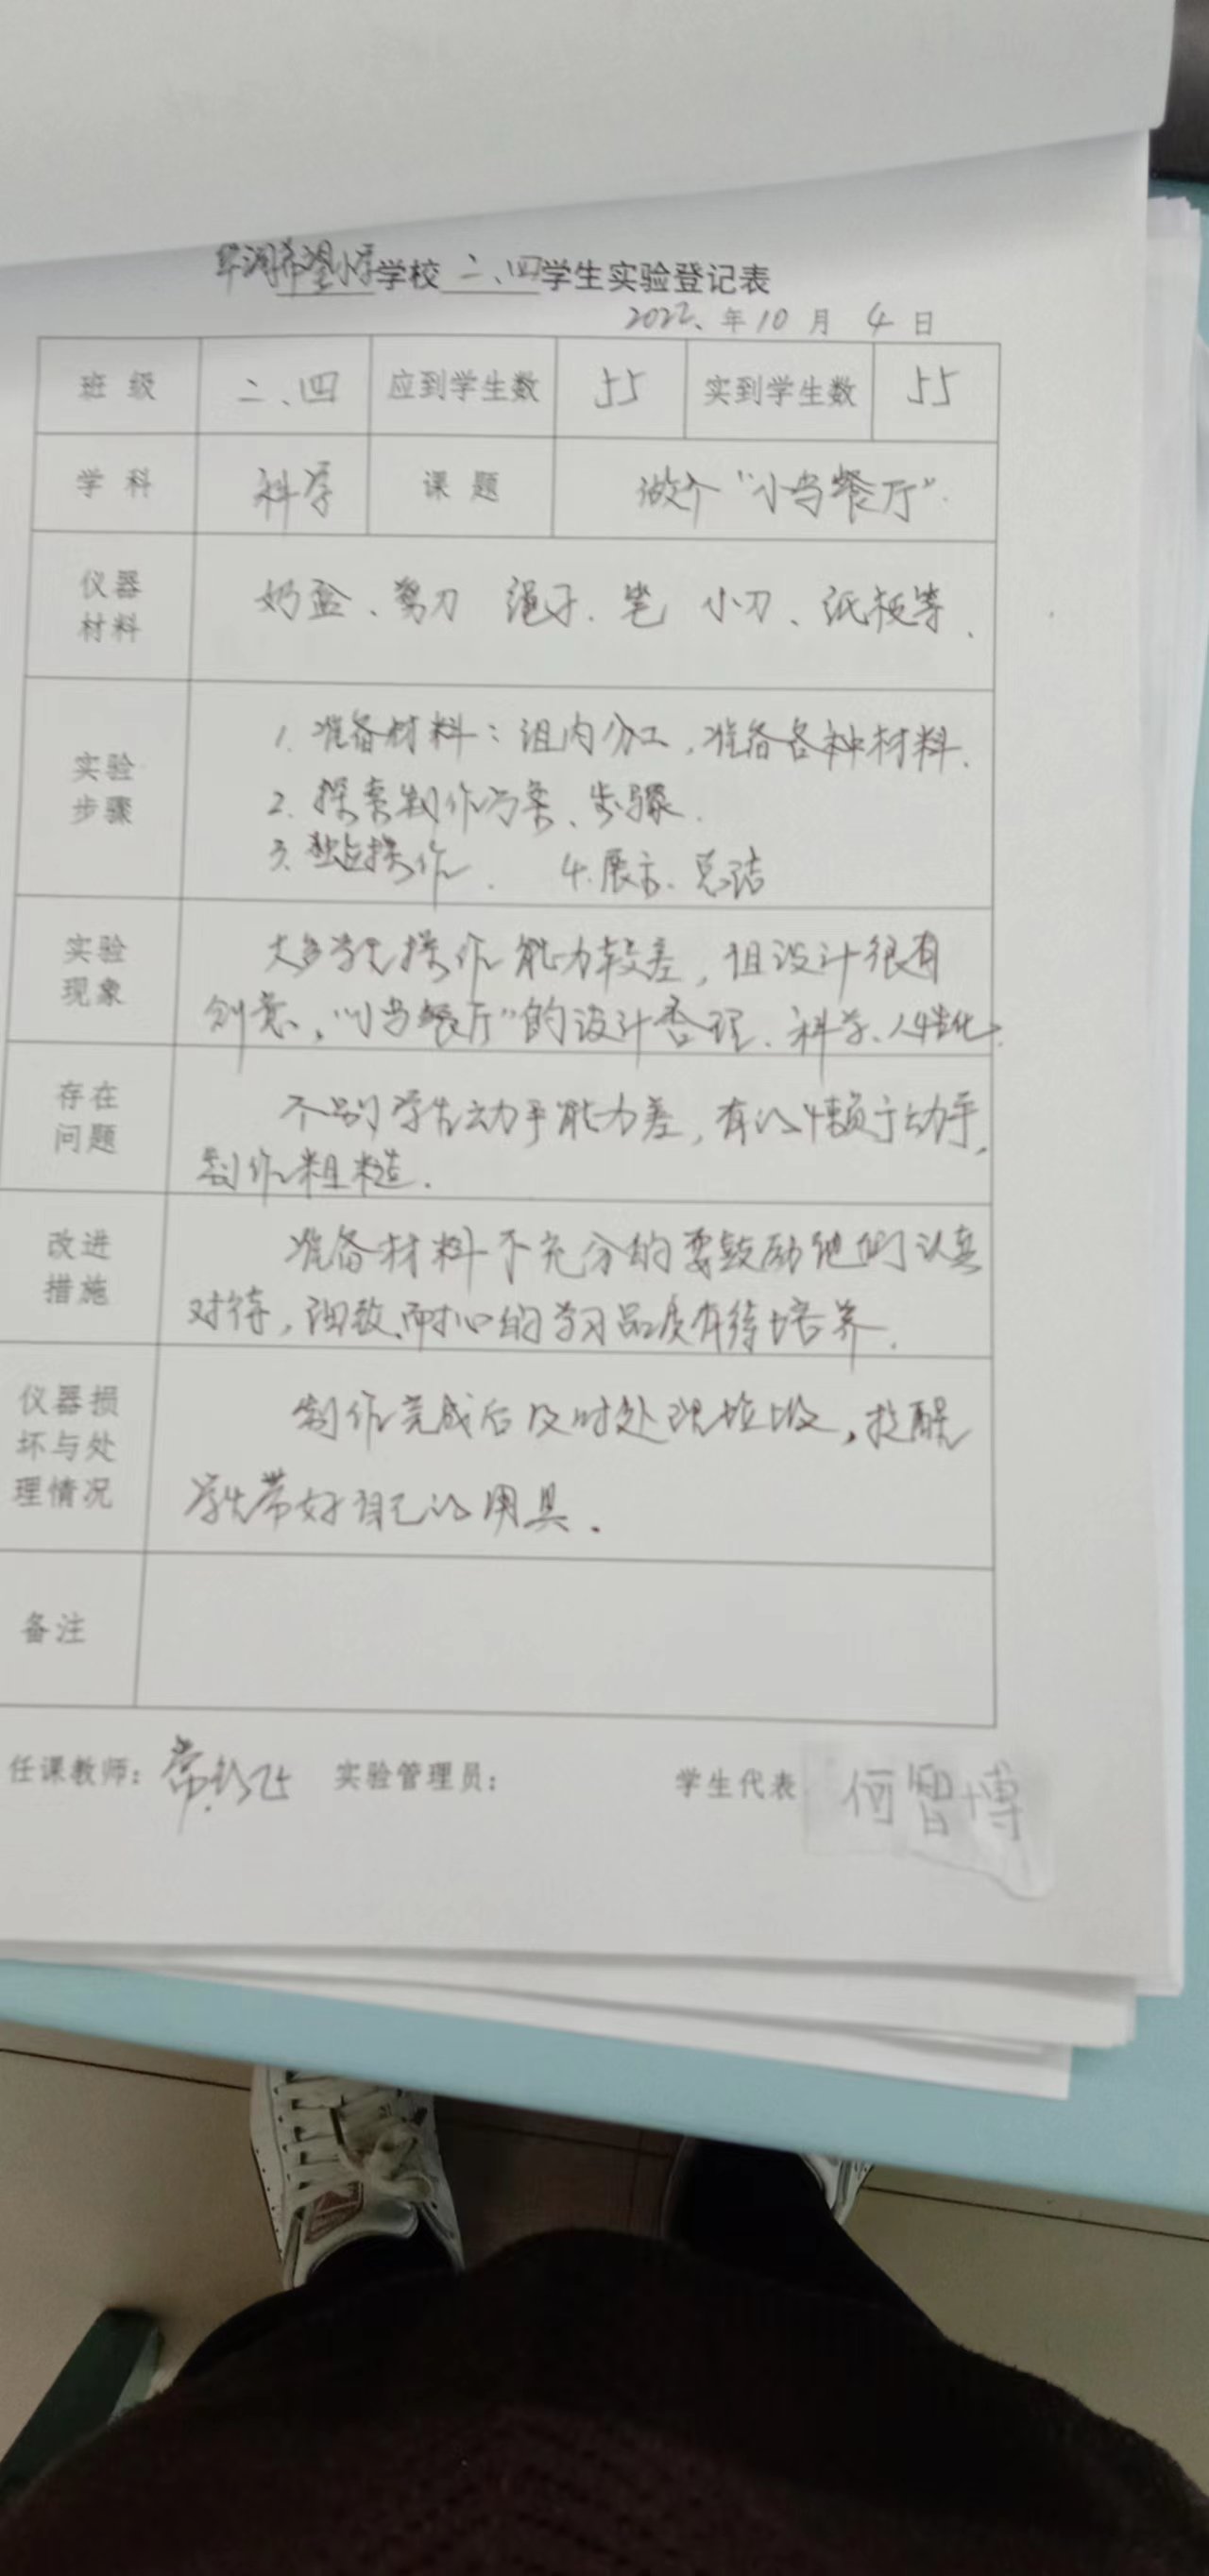 华润希望小学学校 二、四学生实验登记表
2022年10月4日
班级 二、四 应到学生数 55 实到学生数 55
学科 科学 课题 做个“小鸟餐厅”.
仪器材料 奶盒、剪刀 绳子、笔 小刀、纸板等、
实验步骤 1. 准备材料:组内分工,准备各种材料.
2. 探索制作方案、步骤.
3. 独立操作. 4. 展示、总结
实验现象 大多学生操作能力较差,但设计很有
创意,“小鸟餐厅”的设计合理、科学、人性化.
存在问题 个别学生动手能力差,有的懒于动手,
制作粗糙.
改进措施 准备材料不充分的要鼓励他们认真
对待,细致、耐心的学习品质有待培养.
仪器损坏与处理情况 制作完成后及时处理垃圾,提醒
学生带好自己的用具.
备注
任课教师:常 实验管理员: 学生代表 何智博